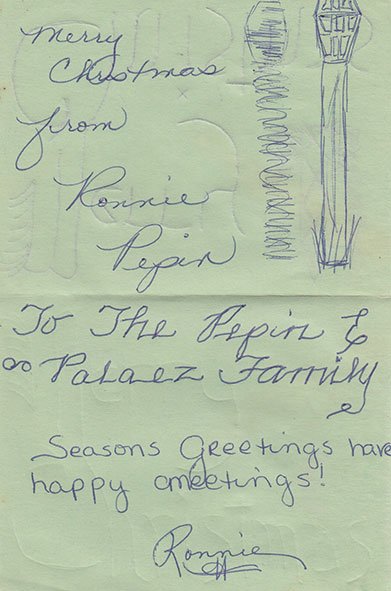 Merry
Christmas
from
Ronnie
Pepin
To The Pepin &
Palaez Family
Seasons Greetings have
happy meetings!
Ronnie